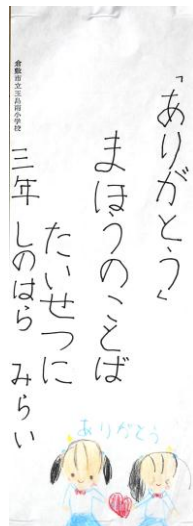 「ありがとう」
まほうのことば
たいせつに
三年 しのはら みらい
倉敷市立玉島南小学校
ありがとう